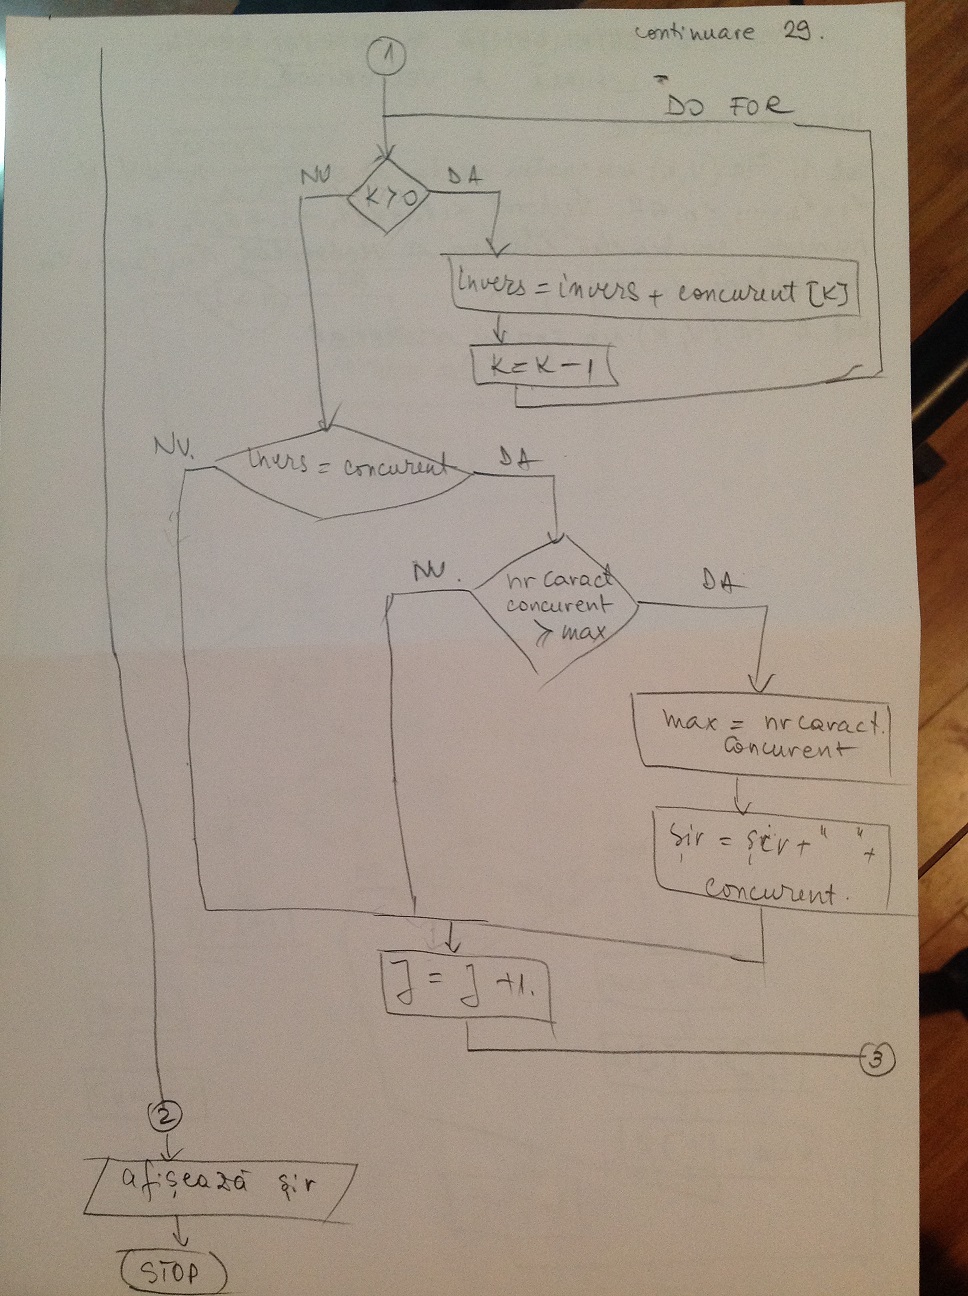 continuare 29.
1
DO FOR
NU
DA
K>0
invers = invers + concurent [K]
K = K - 1
NU.
invers = concurent
DA
NU.
nr caract
concurent
≥ max
DA
max = nr caract.
concurent
șir = șir + " " +
concurent.
J = J +1.
3
2
afișează șir
STOP